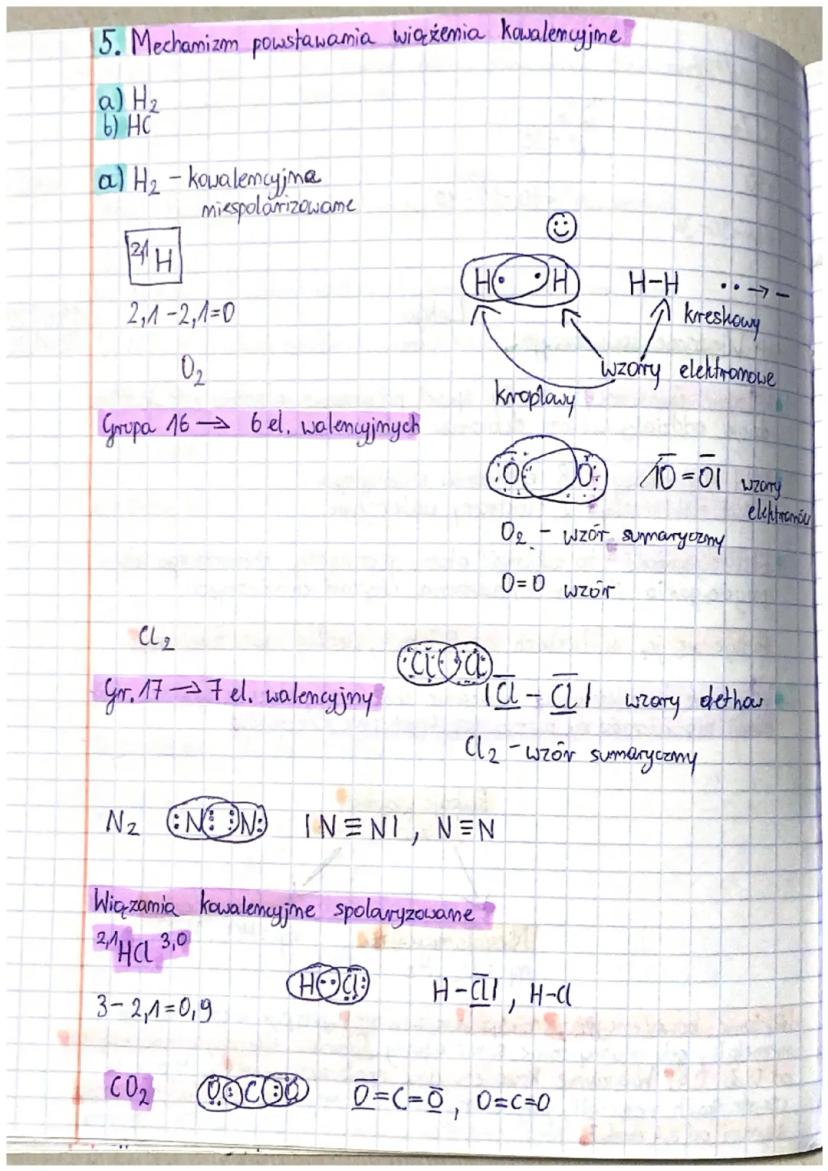 5. Mechanizm powstawania wiążenia kowalencyjne
a) H₂
b) HC
a) H₂ - kowalencyjna
niespolarizowane
2,1 H
H· ·H H-H ·· → -
2,1-2,1=0
kreskowy
O₂
wzory elektronowe
kroplowy
Grupa 16 → 6 el. walencyjnych
O O |O=O| wzory
elektronów
O₂ - wzór sumaryczny
O=O wzór
Cl₂
Cl Cl
Gr. 17 → 7 el. walencyjny
|Cl - Cl| wzory
Cl₂ - wzór sumaryczny
N₂ :N⋮⋮N: |N≡N|, N≡N
Wiązania kowalencyjne spolaryzowane
2,1 HCl 3,0
H··Cl: H-Cl|, H-Cl
3-2,1=0,9
CO₂ O::C::O O=C=O, O=C=O